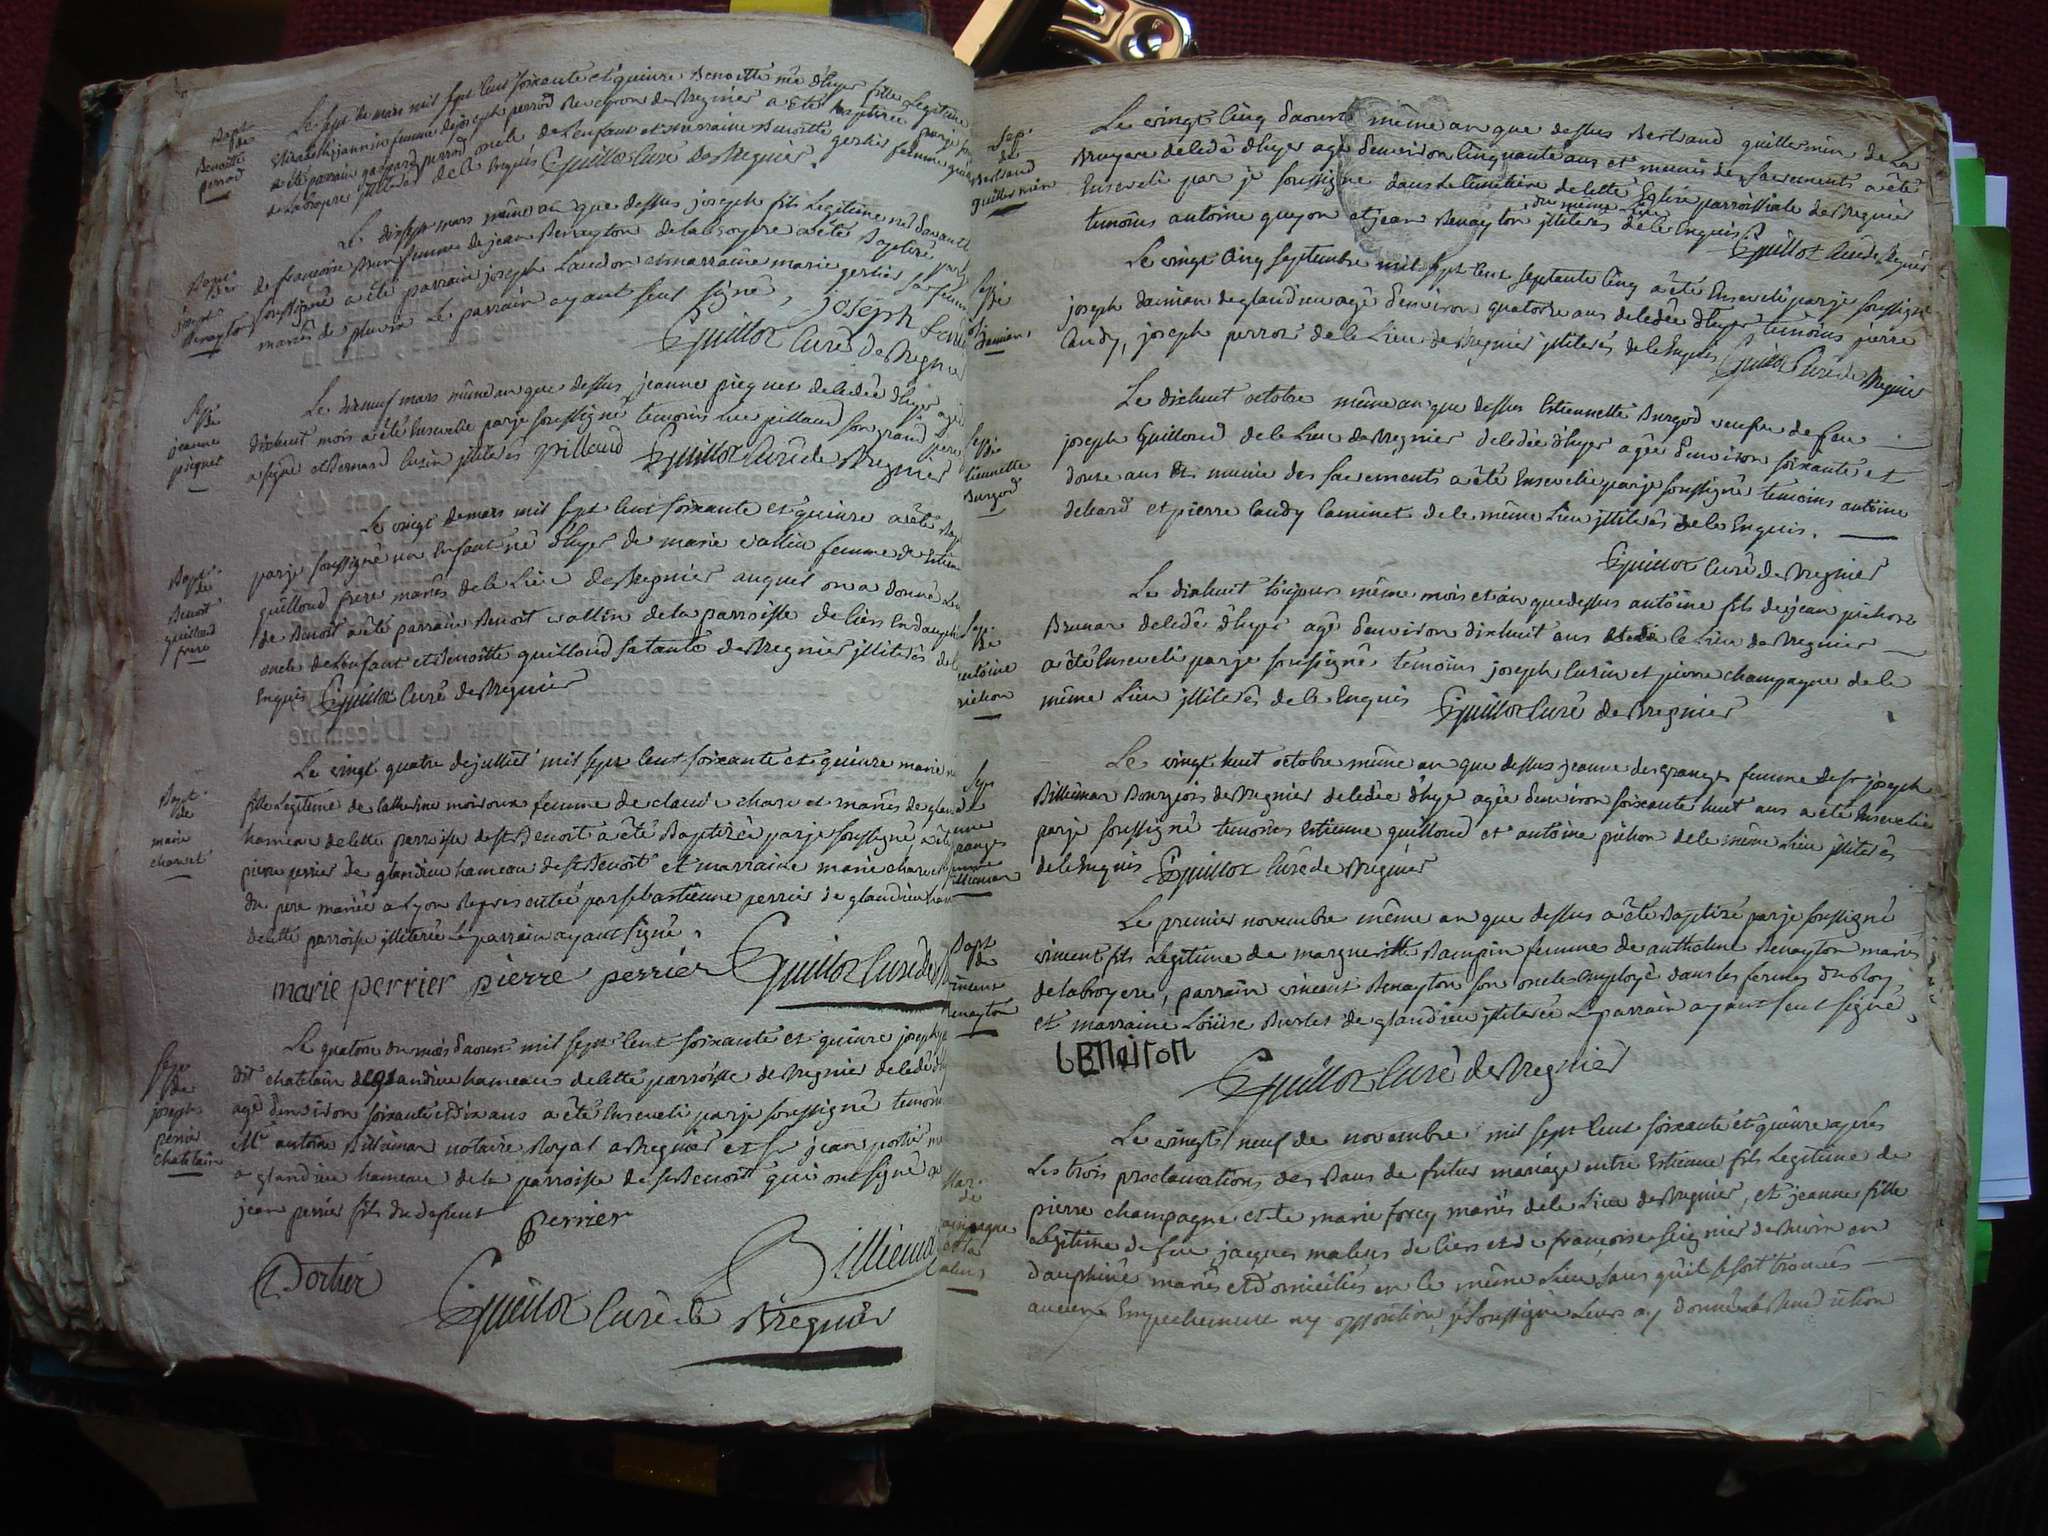 Bapt
de
Benoitte
perrod
Le sept de mars mil sept cent soixante et quinze Benoitte née d'hyer fille Legitime
Elizabeth jannin femme de joseph perrod vigneron de Bregnier a été baptisée par je
a été parrain gaspard perrod oncle de L'enfant et marraine Benoitte gertier femme
illiterés de le Enquis Guillot Curé de Bregnier
Bapt
de
joseph
Benayton
Le dixsept mars même an que dessus joseph fils Legitime né d'avant
de francoise Brun femme de jean Benayton de la broyere a été Baptisé par je
soussigné a été parrain joseph Landon et marraine marie gertier sa femme
mariés de Le parrain ayant seul signé, joseph
Guillot Curé de Bregnier
Sep
de
jeanne
picquet
Le dixneuf mars même an que dessus jeanne picquet decedée d'hyer agée
dixhuit mois a été Ensevelie par je soussigné temoins pillaud son grand pere
a signé et Bernard Cusin illiterés pillaud Guillot Curé de Bregnier
Bapt
de
Benoit
guilloud
frere
Le vingt de mars mil sept cent soixante et quinze a été
par je soussigné un Enfant né d'hyer de marie vallin femme de
guilloud frere mariés de le Lieu de Bregnier auquel on a donné Le
de Benoit a été parrain Benoit vallin de la parroisse de Ciers En dauphiné
oncle de L'enfant et Benoitte guilloud sa tante de Bregnier illiterés de le
Enquis Guillot Curé de Bregnier
Bapt
de
marie
charvet
Le vingt quatre de juilliet mil sept cent soixante et quinze marie
fille Legitime de Catherine moiroux femme de claude charvet mariés de
hameau de cette parroisse de st Benoit a été Baptisée par je soussigné a été
pierre perrier de glandieu hameau de st Benoit et marraine marie charvet
du pere mariée a Lyon Representée par sebastienne perrier de glandieu
de cette parroisse illiterée Le parrain ayant signé.
marie perrier pierre perrier Guillot Curé de
Sep
de
joseph
perrier
chatelain
Le quatorze du mois d'aoust mil sept cent soixante et quinze joseph
dit chatelain de glandieu hameau de cette parroisse de Bregnier decedé
agé d'environ soixante et dix ans a été Enseveli par je soussigné temoins
Me antoine Billiemaz notaire Royal a Bregnier et sr jean portier
a glandieu hameau de la parroisse de st Benoit qui ont signé
jean perrier fils du defunt
perrier
Portier
Billiemaz
Guillot Curé de Bregnier
Sep
de
Bertrand
guillermin
Le vingt cinq d'aoust même an que dessus Bertrand guillermin de La
Bruyere decedé d'hyer agé d'environ Cinquante ans et munis des sacrements a été
Enseveli par je soussigné dans Le Cimetiere de cette Eglise parroissiale de Bregnier
du même Lieu
temoins antoine guyon et jean Benayton illiterés de le Enquis
Guillot Curé de Bregnier
Sep
de
jo
damian
Le vingt cinq septembre mil sept cent septante cinq a été Enseveli par je soussigné
joseph damian de glandieu agé d'environ quatorze ans decedé d'hyer temoins pierre
Caudy, joseph perrod de le Lieu de Bregnier illiterés de le Enquis Guillot Curé de Bregnier
Sep
de
tiennette
Burgod
Le dixhuit octobre même an que dessus Estiennette Burgod veufve de feu
joseph Guilloud de le Lieu de Bregnier decedée d'hyer agée d'environ soixante et
douze ans munie des sacrements a été Ensevelie par je soussigné temoins antoine
debeard et pierre Caudy Caminet de le même Lieu illiterés de le Enquis.
Guillot Curé de Bregnier
Sep
de
antoine
pichon
Le dixhuit toujours même mois et an que dessus antoine fils de jean pichon
Brunar decedé d'hyer agé d'environ dixhuit ans de le Lieu de Bregnier
a été Enseveli par je soussigné temoins joseph Cusin et pierre champagne de le
même Lieu illiterés de le Enquis Guillot Curé de Bregnier
Sep
de
jeanne
granges
femme
Billiemaz
Le vingt huit octobre même an que dessus jeanne desgranges femme de sr joseph
Billiemaz Bourgeois de Bregnier decedée d'hyer agée d'environ soixante huit ans a été Ensevelie
par je soussigné temoins Estienne guilloud et antoine pichon de le même Lieu illiterés
de le Enquis Guillot Curé de Bregnier
Bapt
de
vincent
Benayton
Le premier novembre même an que dessus a été Baptisé par je soussigné
vincent fils Legitime de margueritte Bampin femme de anthelme Benayton mariés
de la broyere, parrain vincent Benayton son oncle Employé dans les fermes du Roy,
et marraine Louise Burlet de glandieu illiterée Le parrain ayant seul signé.
benaiton
Guillot Curé de Bregnier
Mar
de
champagne
et la
malius
Le vingt neuf de novembre mil sept cent soixante et quinze après
Les trois proclamations des Bans de futur mariage entre Estienne fils Legitime de
pierre champagne et de marie forey mariés de le Lieu de Bregnier, et jeanne fille
Legitime de feu jacques malius de Ciers et de françoise seignier de en
dauphiné mariés et domiciliés en le même Lieu sans qu'il se soit trouvés
aucun Empechement ny opposition, je soussigné Leurs ay donné La Benediction